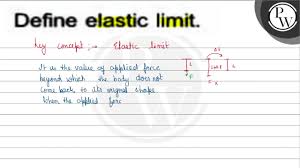 Define elastic limit.
PW
key concept :→ Elastic limit
It is the value of applied force
beyond which the body does not
come back to its original shape
When the applied forc